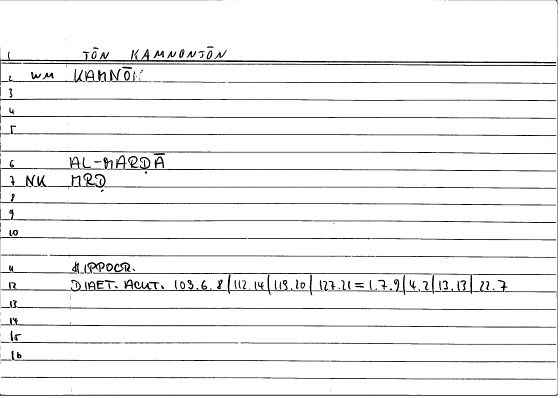 1 TŌN KAMNONTŌN
2 WM KAMNŌN
3
4
5
6 AL-MARḌĀ
7 NK MRḌ
8
9
10
11 HIPPOCR.
12 DIAET. ACUT. 109.6.8|112.14|119.20|127.21 = 1.7.9|4.2|13.13|22.7
13
14
15
16